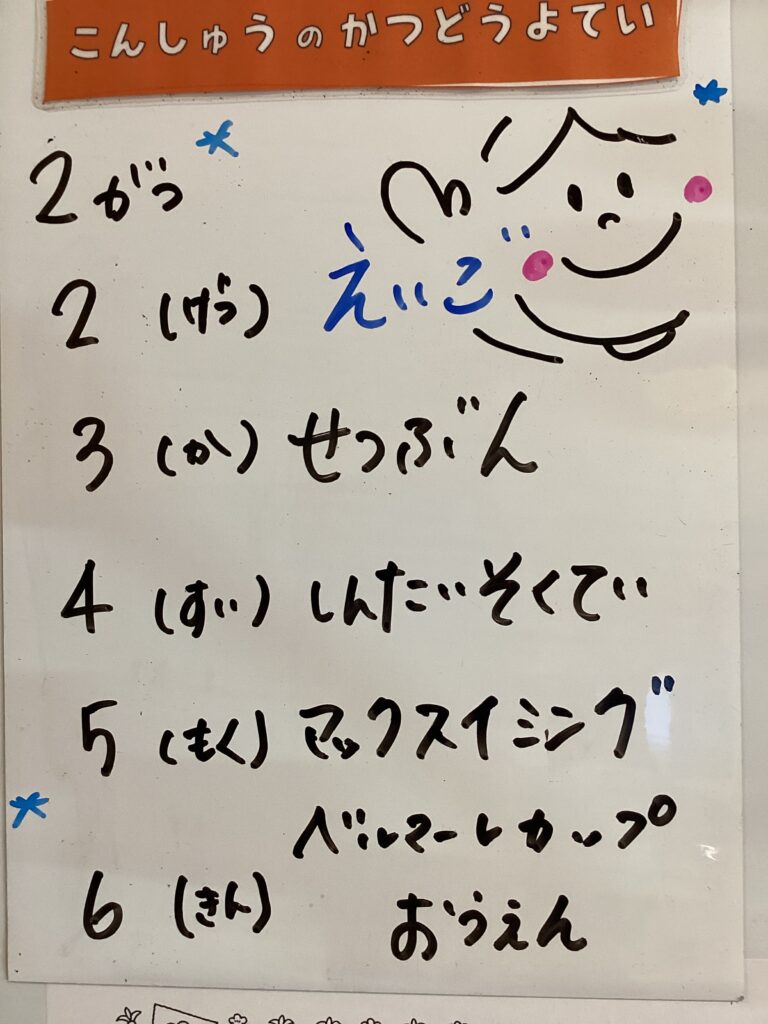 こんしゅうのかつどうよてい
2がつ
2 (げつ) えいご
3 (か) せつぶん
4 (すい) しんたいそくてい
5 (もく) マックスイミング
ベルマーレカップ
6 (きん) おうえん